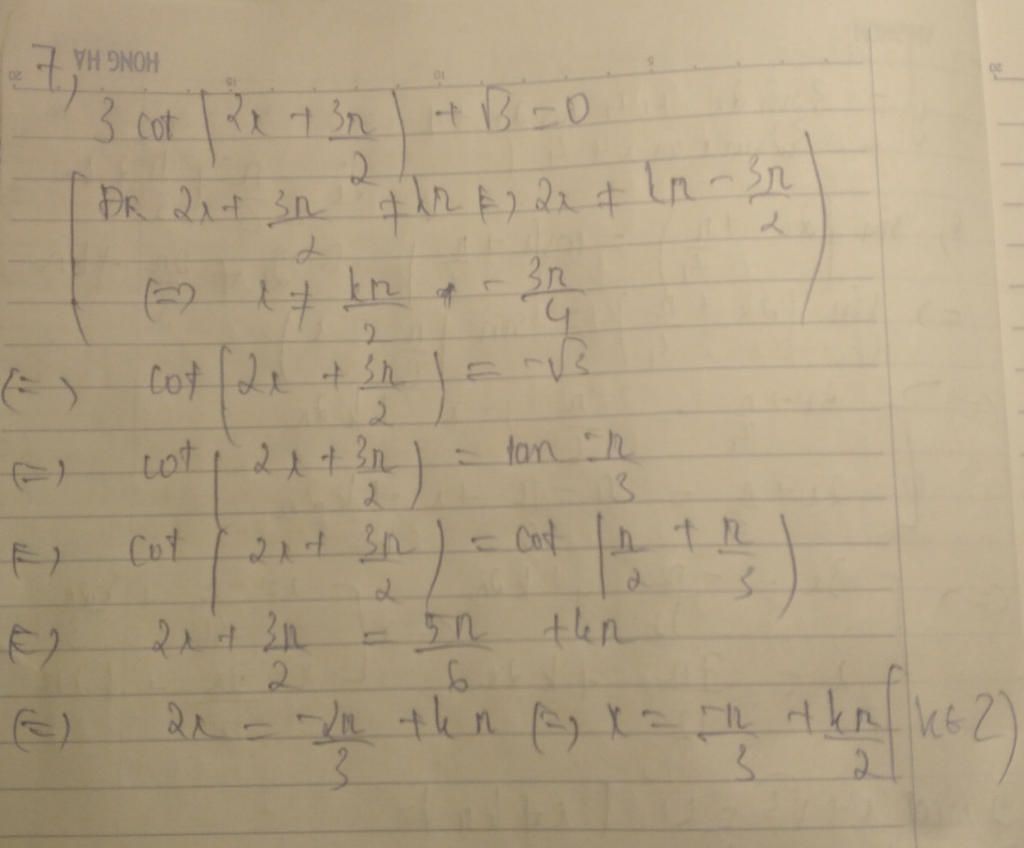 HONG HA
20 15 10 5 20
7, 3 cot (2x + 3π/2) + √3 = 0
(ĐK 2x + 3π/2 ≠ kπ (=) 2x ≠ kπ - 3π/2
(=) x ≠ kπ/2 - 3π/4)
(=) cot (2x + 3π/2) = -√3
(=) cot (2x + 3π/2) = tan -π/3
(=) cot (2x + 3π/2) = cot (π/2 + π/3)
(=) 2x + 3π/2 = 5π/6 + kπ
(=) 2x = -2π/3 + kπ (=) x = -π/3 + kπ/2 (k∈Z)